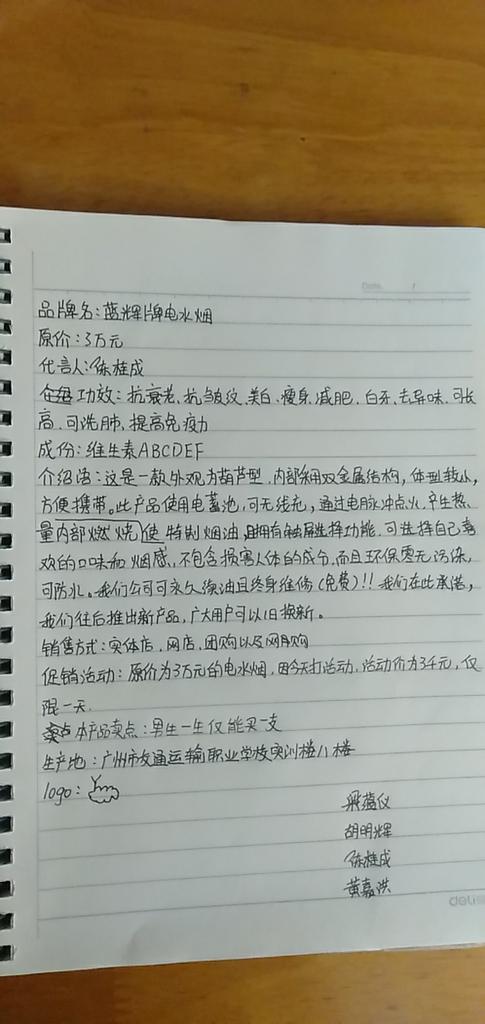 Date. /
品牌名：蓝辉牌电水烟
原价：3万元
代言人：陈桂成
功效：抗衰老、抗皱纹、美白、瘦身、减肥、白牙、去异味、可长
高、可洗肺、提高免疫力
成份：维生素ABCDEF
介绍语：这是一款外观为葫芦型，内部采用双金属结构，体型较小，
方便携带。此产品使用电蓄池，可无线充，通过电脉冲点火，产生热
量内部燃烧使特制烟油，且拥有触屏选择功能，可选择自己喜
欢的口味和烟感，不包含损害人体的成分，而且环保零无污染，
可防水。我们公司可永久续油且终身维修（免费）!! 我们在此承诺，
我们往后推出新产品，广大用户可以旧换新。
销售方式：实体店、网店、团购以及网购
促销活动：原价为3万元的电水烟，因今天打活动，活动价为3千元，仅
限一天.
本产品卖点：男生一生仅能买一支
生产地：广州市交通运输职业学校实训楼八楼
logo：
蕴仪
胡明辉
陈桂成
黄嘉洪
deli